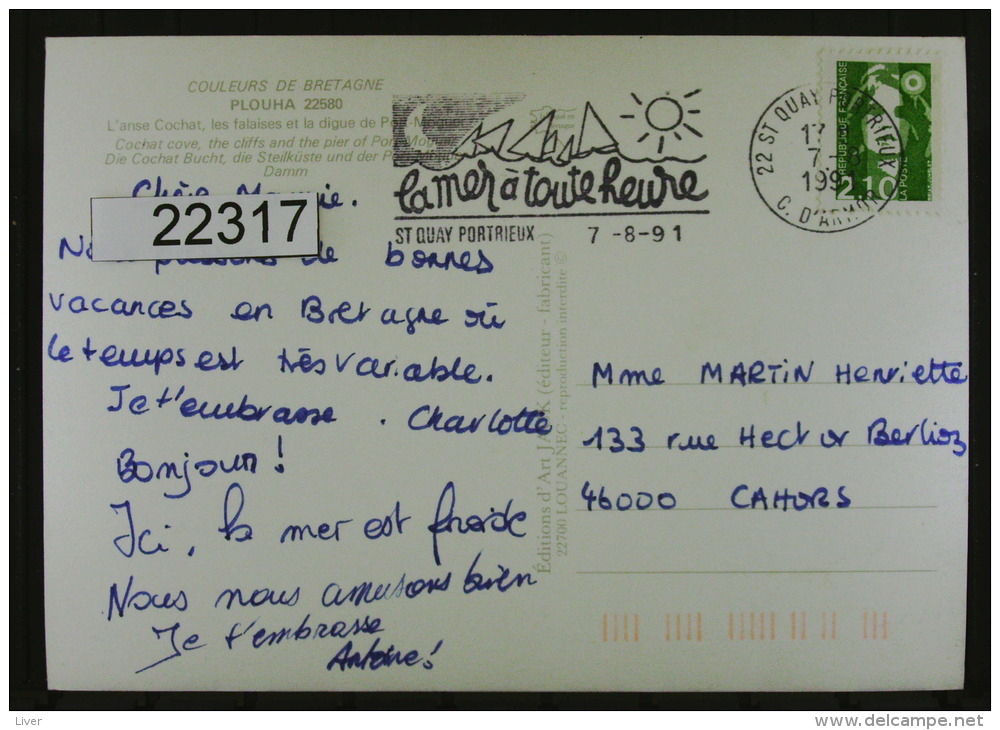 COULEURS DE BRETAGNE
PLOUHA 22580
L'anse Cochat, les falaises et la digue de
Cochat cove, the cliffs and the pier of
Die Cochat Bucht, die Steilküste und der
Damm
la mer à toute heure
ST QUAY PORTRIEUX 7-8-91
22 ST QUAY PORTRIEUX
17
7-8
1991
C. D'ARMOR
REPUBLIQUE FRANÇAISE
2,10
LA POSTE
22317
Chère
de bonnes
vacances en Bretagne où
le temps est très variable.
Je t'embrasse. Charlotte
Bonjour !
Ici, la mer est froide
Nous nous amusons bien
Je t'embrasse
Antoine !
Éditions d'Art JACK (éditeur - fabricant)
22700 LOUANNEC - reproduction interdite ©
Mme MARTIN Henriette
133 rue Hector Berlioz
46000 CAHORS
Liver
delcampe.net